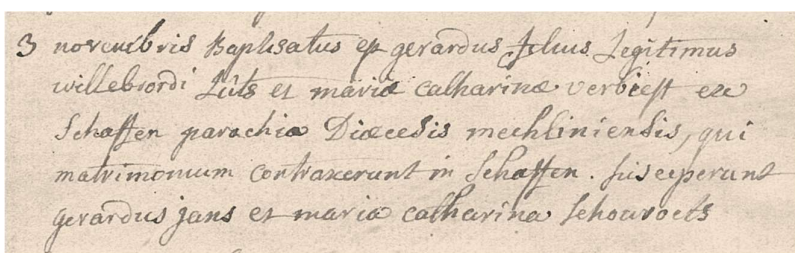 3 novembris Baptisatus est gerardus filius Legitimus
willebrordi Luts et maria catharina verbiest ex
Schaffen parochia Diœcesis mechliniensis, qui
matrimonium contraxerunt in Schaffen. susceperunt
gerardus jans et maria catharina Schouroets